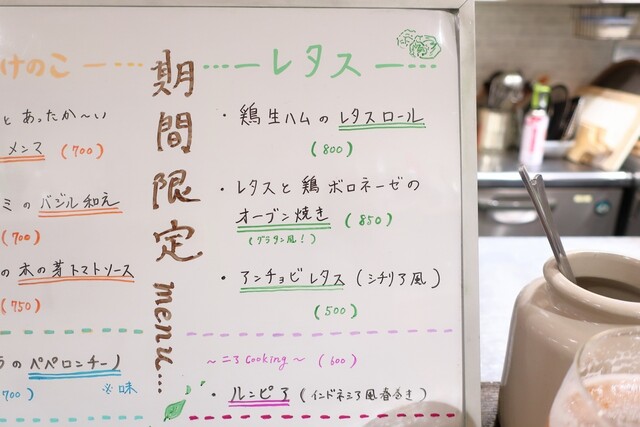 けのこ
と あったか〜い
メンマ (700)
ミの バジル和え
(700)
の 木の芽トマトソース
(750)
うの ペペロンチーノ
700) ※味
期間限定 menu...
レタス
・鶏生ハムの レタスロール
(800)
・レタスと鶏ボロネーゼの
オーブン焼き (850)
(グラタン風!)
・アンチョビレタス (シチリア風)
(500)
〜ニろ Cooking〜 (600)
・ルンピア (インドネシア風春巻き)